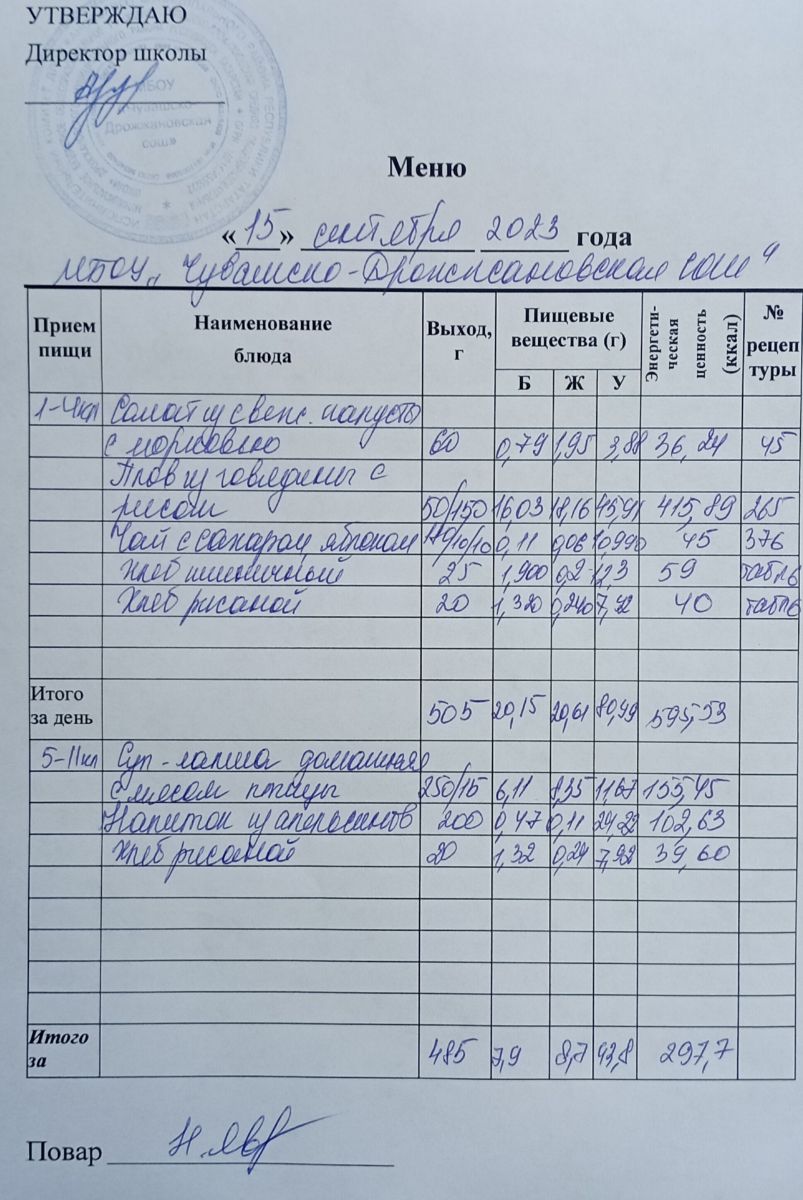 УТВЕРЖДАЮ
Директор школы
МБОУ
Чувашско-
Дрожжановская
сош»
Меню
«15» сентября 2023 года
МБОУ „Чувашско-Дрожжановская СОШ"
Прием пищи Наименование блюда Выход, г Пищевые вещества (г) Энергети-ческая ценность (ккал) № рецептуры
Б Ж У
1-4кл Салат из свеж. капусты
с морковью 60 0,79 1,95 3,88 36,24 45
Плов из говядины с
рисом 50/150 16,03 18,16 45,91 415,89 265
Чай с сахаром яблоком 0,11 0,06 10,990 45 376
Хлеб пшеничный 25 1,900 0,2 12,3 59 табл6
Хлеб ржаной 20 1,320 0,240 7,92 40 табл6
Итого
за день 505 20,15 20,61 80,99 595,53
5-11кл Суп-лапша домашняя
с мясом птицы 250/15 6,11 8,35 11,67 155,45
Напиток из апельсинов 200 0,47 0,11 24,22 102,63
Хлеб ржаной 20 1,32 0,24 7,92 39,60
Итого
за 485 7,9 8,7 43,8 297,7
Повар